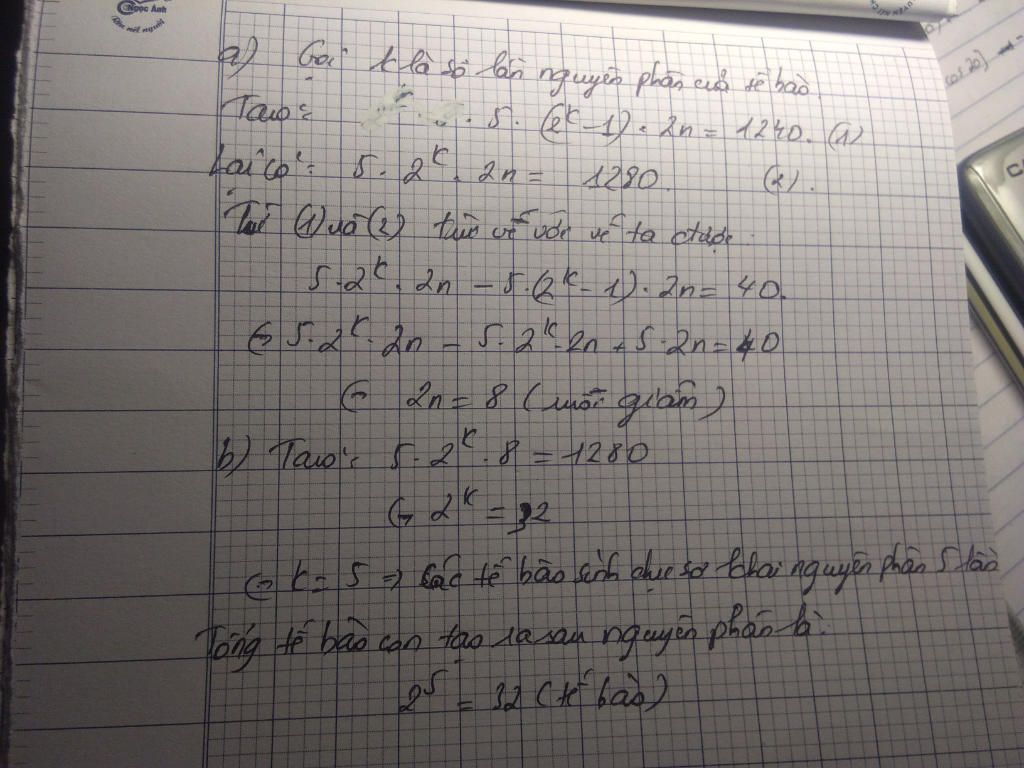 Ngọc Ánh
a) Gọi k là số lần nguyên phân của tế bào.
Ta có: 5. (2^k - 1) . 2n = 1240. (1)
Lại có: 5 . 2^k . 2n = 1280. (2).
Từ (1) và (2) trừ vế với vế ta được:
5.2^k. 2n - 5.(2^k - 1) . 2n = 40.
⇔ 5.2^k.2n - 5.2^k.2n + 5.2n = 40
⇔ 2n = 8 (ruồi giấm)
b) Ta có: 5.2^k.8 = 1280
⇔ 2^k = 32
⇔ k = 5 ⇒ các tế bào sinh dục sơ khai nguyên phân 5 lần
Tổng tế bào con tạo ra sau nguyên phân là:
2^5 = 32 (tế bào)